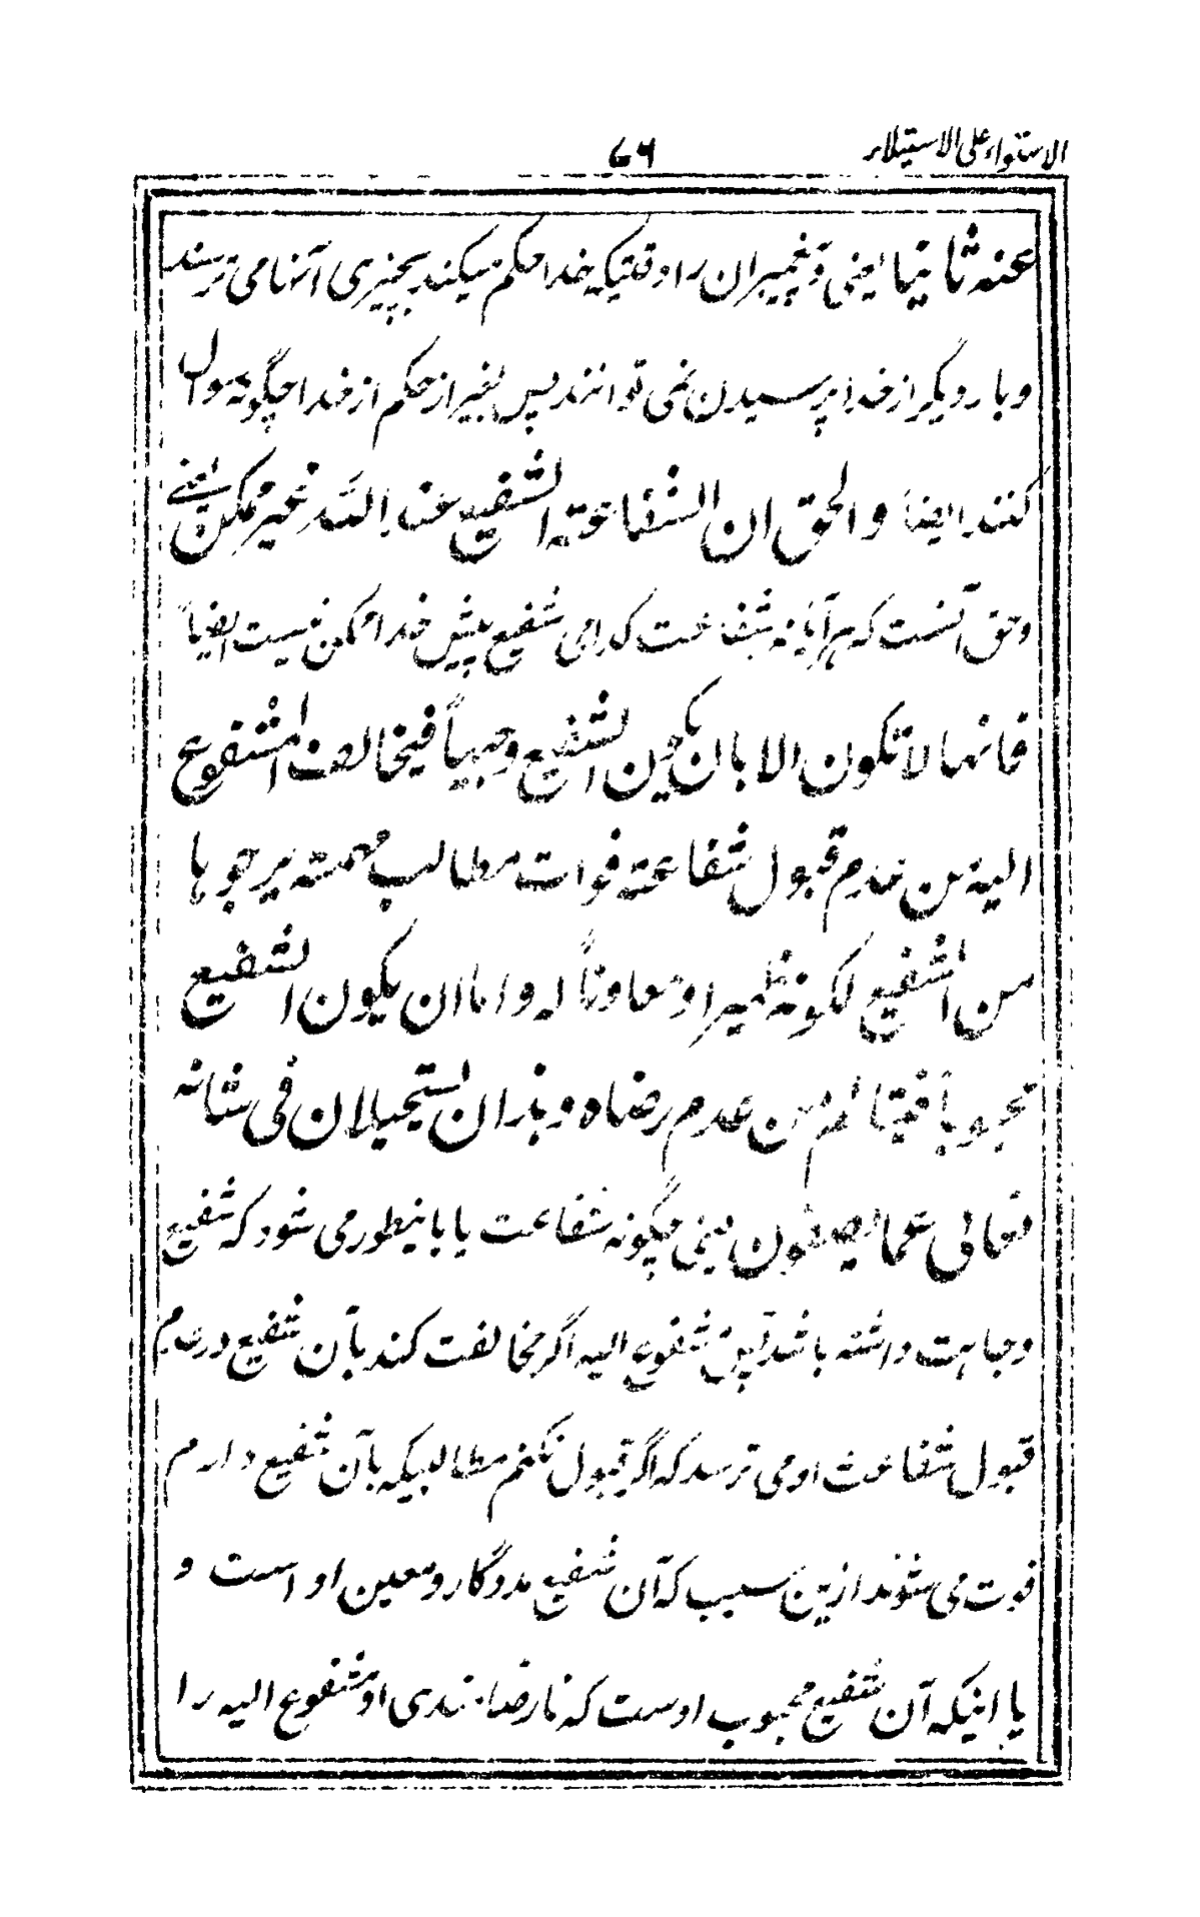 الاستواء على الاستيلاء ٧٦
عنه ثانيا یعنی و پیغمبران را وقتیکه خدا حکم میکند بچیزی آنها می ترسند
و بار دیگر از خدا پرسیدن نمی توانند پس بغیر از حکم از خدا چگونه سوال
کنند ایضاً والحق ان الشفاعة الشفیع عند الله غیر ممکن یعنے
وحق آنست که هر آیانه شفاعت کدامی شفیع پیش خدا ممکن نیست ایضاً
فانها لا تکون الا بان یکون الشفیع وجیهاً فیخالف المشفوع
الیه من عدم قبول شفاعته فوات مطالب مهمة یرجوها
من الشفیع لکونه ظهیرا و معاوناً له و اما ان یکون الشفیع
محبوباً فیتالم من عدم رضاه و هذان یستحیلان فی شانه
تعالی عما یصفون یعنی چگونه شفاعت یا باینطور می شود که شفیع
وجاهت داشته باشد پس مشفوع الیه اگر مخالفت کند بآن شفیع در عدم
قبول شفاعت او می ترسد که اگر قبول نکنم مطالبیکه بآن شفیع دارم
فوت می شوند ازین سبب که آن شفیع مددگار و معین او است و
یا اینکه آن شفیع محبوب اوست که نارضامندی او مشفوع الیه را